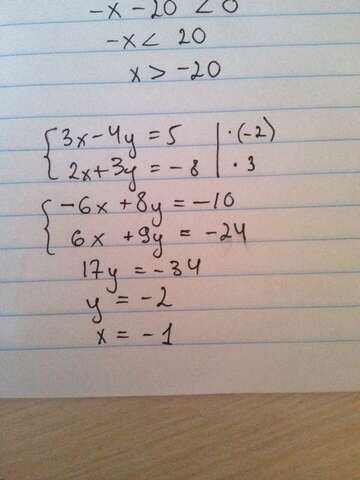 -x - 20 < 0
-x < 20
x > -20
{ 3x - 4y = 5 | · (-2)
2x + 3y = -8 | · 3
{ -6x + 8y = -10
6x + 9y = -24
17y = -34
y = -2
x = -1